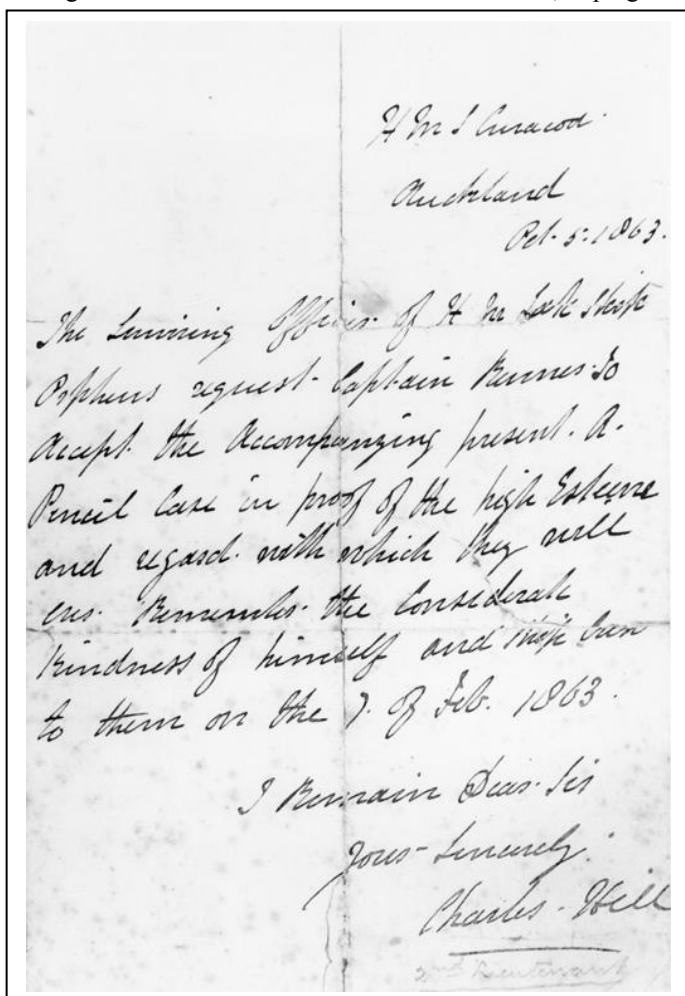 H M S Curacoa.
Auckland
Oct. 5. 1863.
The Surviving Officers of H M Late Ship
Orpheus request Captain to
Accept the Accompanying present. A.
Pencil Case in proof of the high Esteeme
and regard with which they will
ever Remember the Considerate
Kindness of himself and
to them on the 7. of Feb. 1863.
I Remain Dear Sir
Yours Sincerely.
Charles Hill
2nd Lieutenant